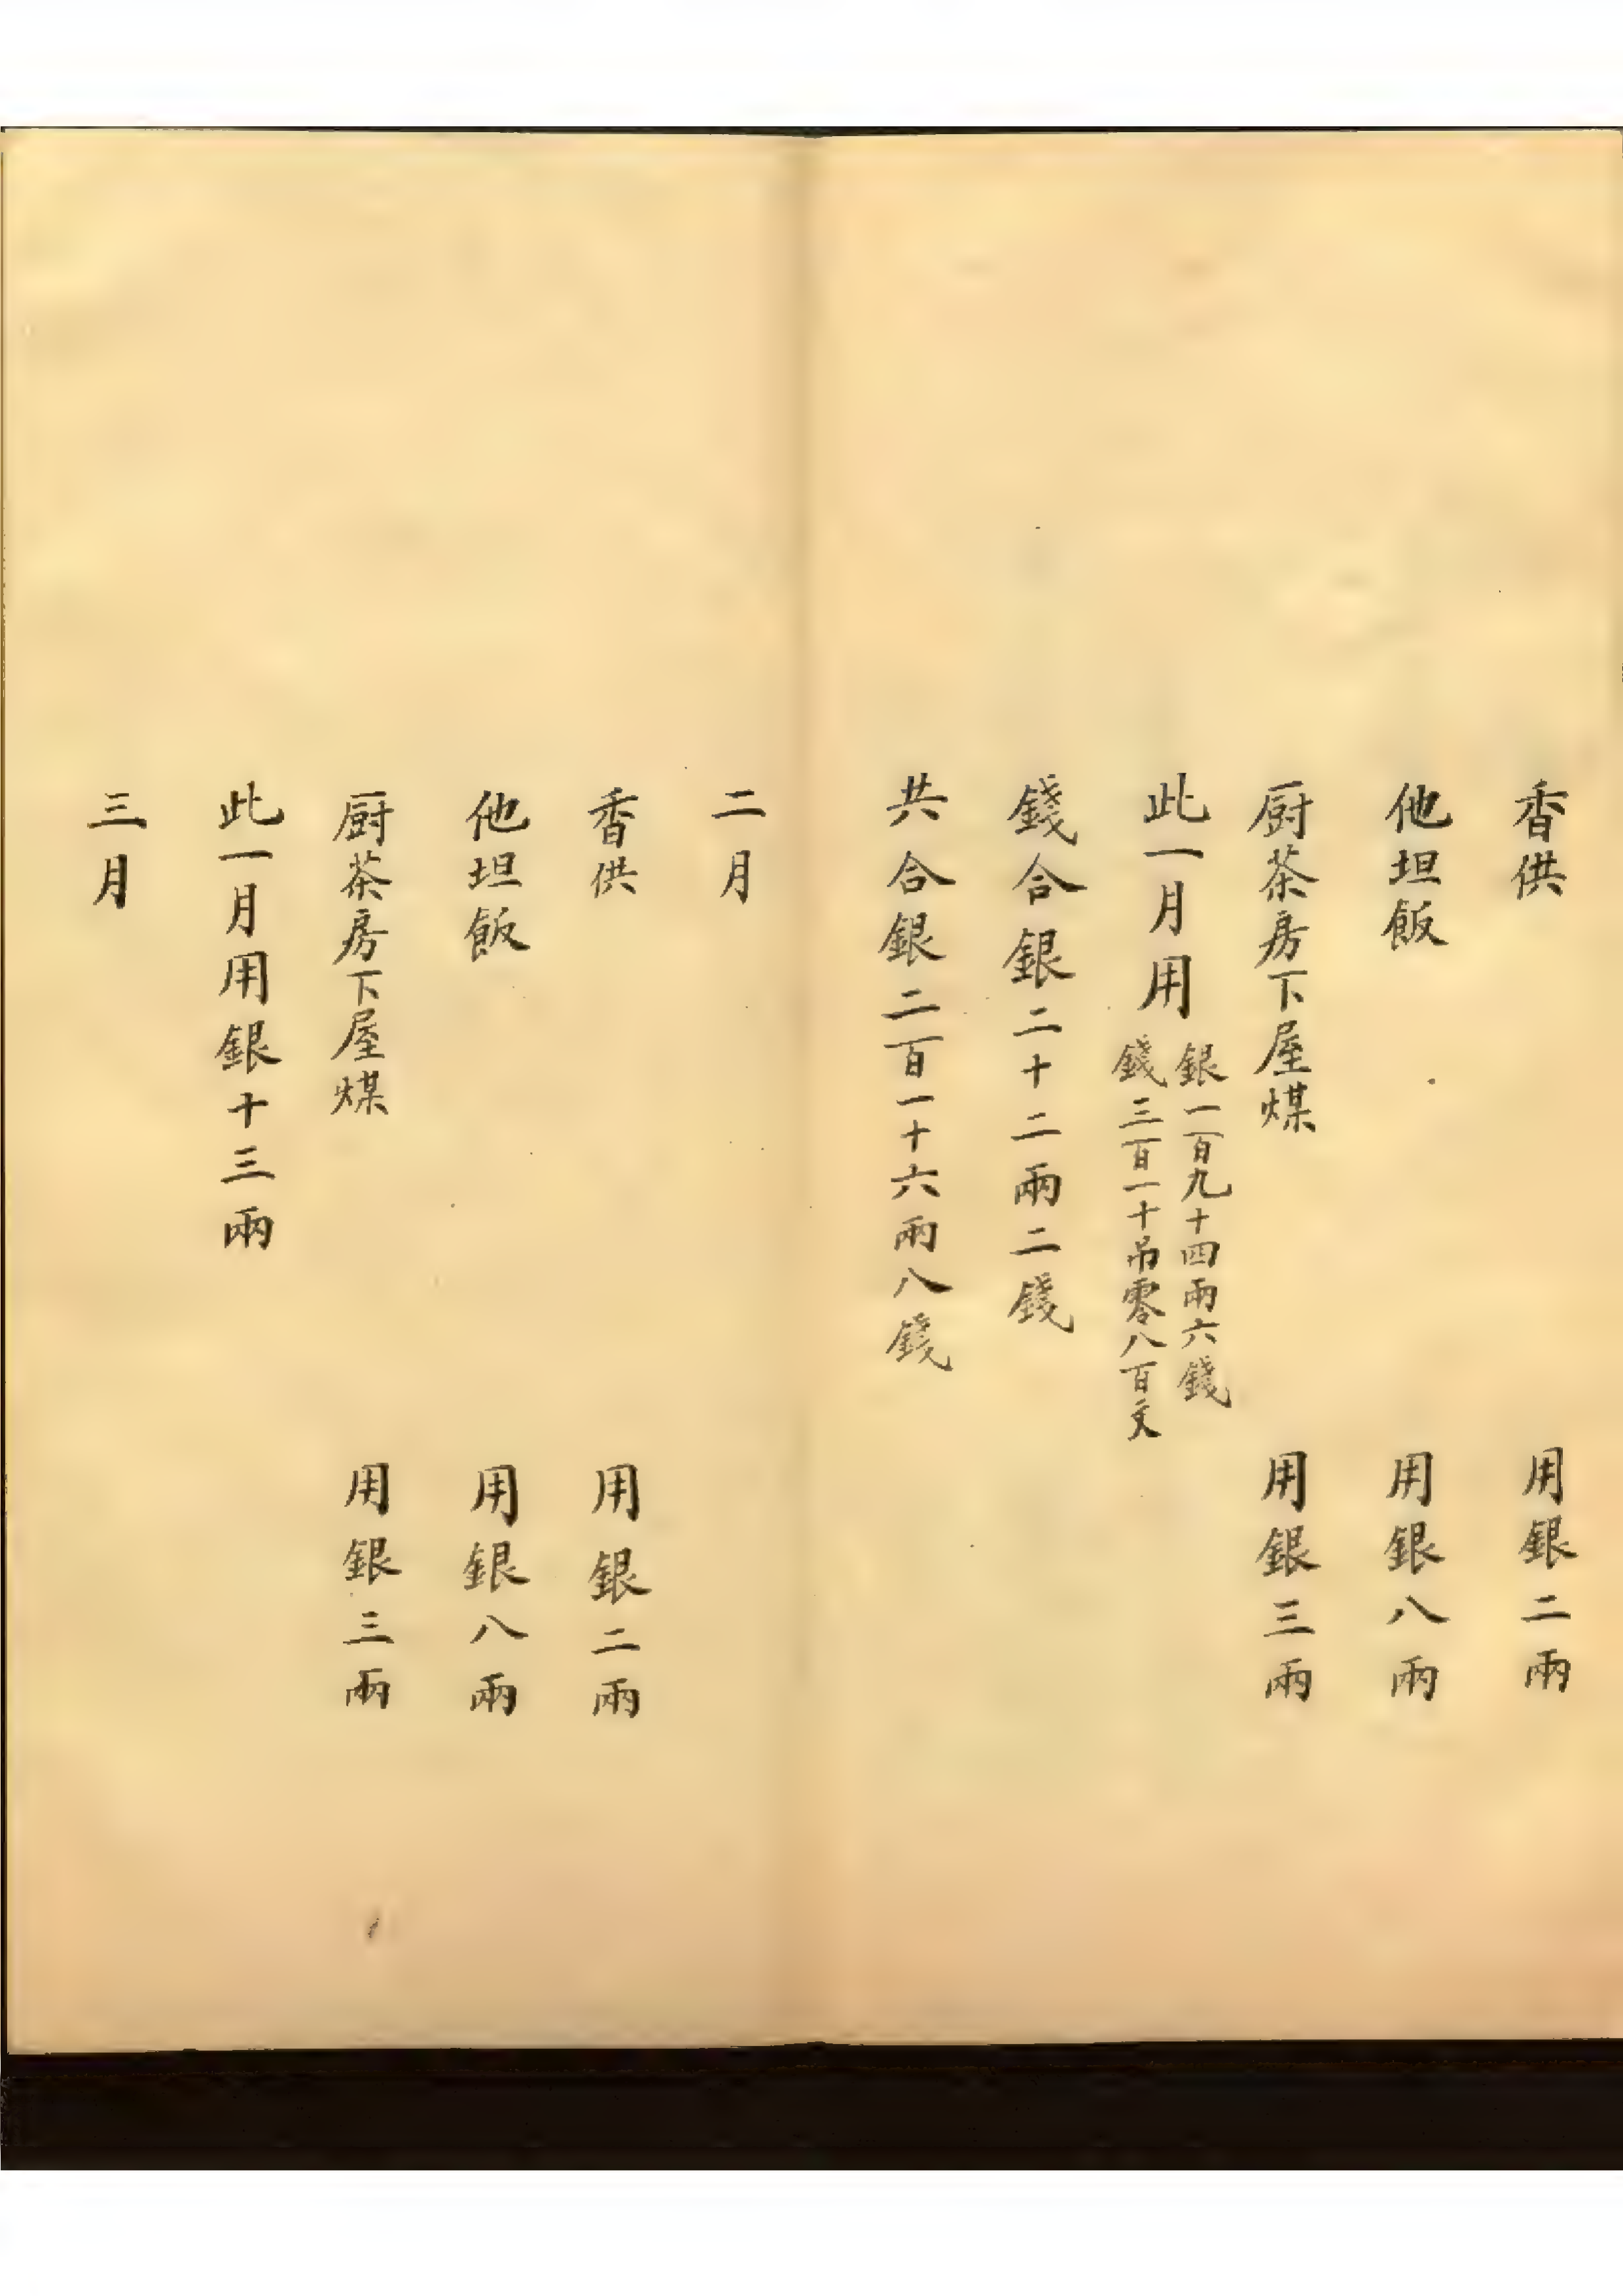 香供 用銀二兩
他坦飯 用銀八兩
厨茶房下屋煤 用銀三兩
此一月用
銀一百九十四兩六錢
錢三百一十吊零八百文
錢合銀二十二兩二錢
共合銀二百一十六兩八錢
二月
香供 用銀二兩
他坦飯 用銀八兩
厨茶房下屋煤 用銀三兩
此一月用銀十三兩
三月